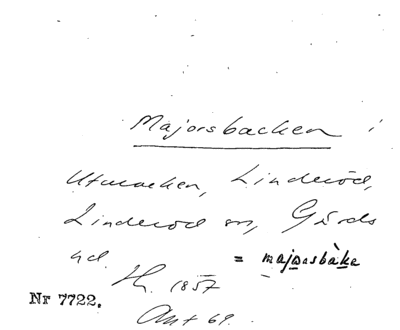 Majorsbacken i
Utmarken, Linderöd,
Linderöd sn, Gärds
hd. = majorsbàke
H. 1857
Nr 7722.
Ant 69.